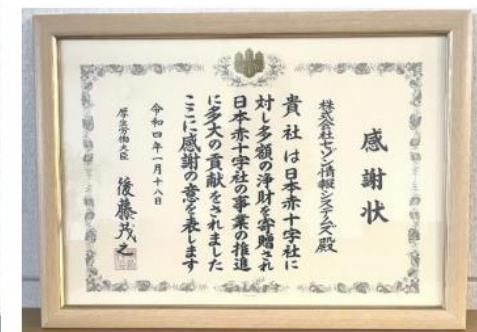 感謝状
株式会社セゾン情報システムズ殿
貴社は日本赤十字社に
対し多額の浄財を寄贈され
日本赤十字社の事業の推進
に多大の貢献をされました
ここに感謝の意を表します
令和四年一月十八日
厚生労働大臣 後藤茂之